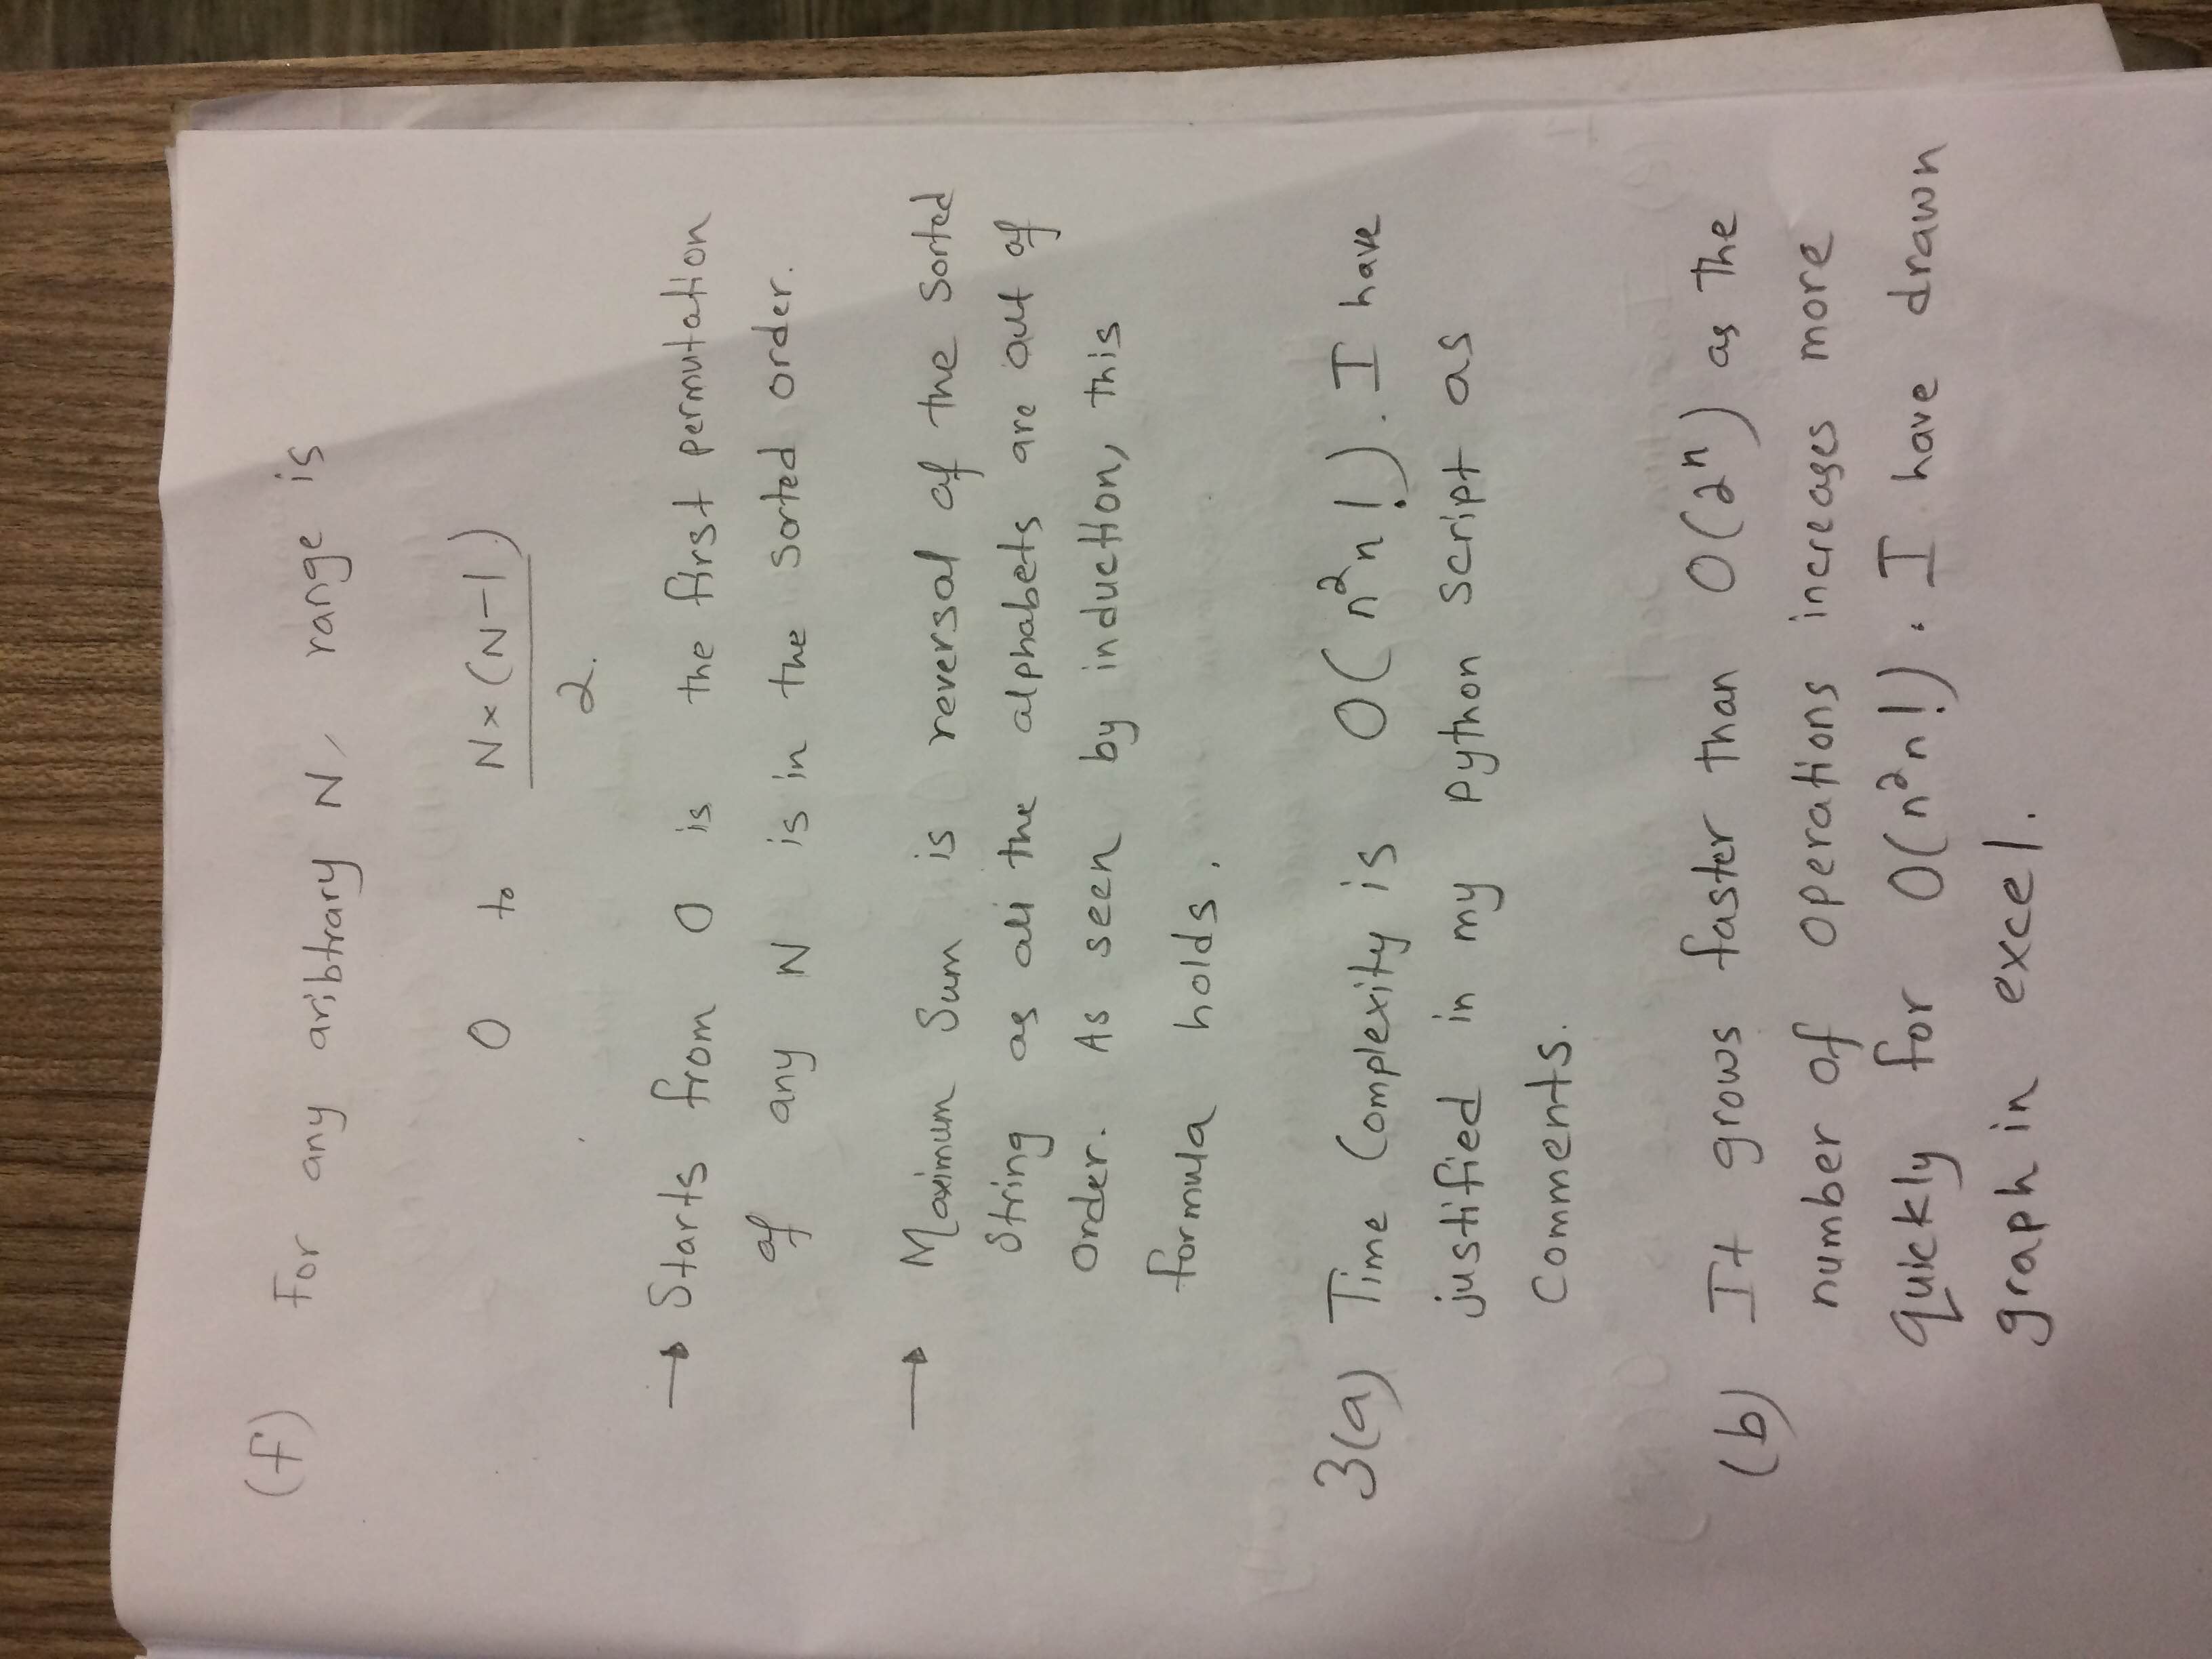 (f) For any aribtrary N, range is
0 to N×(N-1)
2.
→ Starts from 0 is the first permutation
of any N is in the sorted order.
→ Maximum Sum is reversal of the sorted
String as all the alphabets are out of
order. As seen by induction, this
formula holds.
3(a) Time Complexity is O(n²n!). I have
justified in my python script as
comments.
(b) It grows faster than O(2ⁿ) as the
number of operations increases more
quickly for O(n²n!). I have drawn
graph in excel.